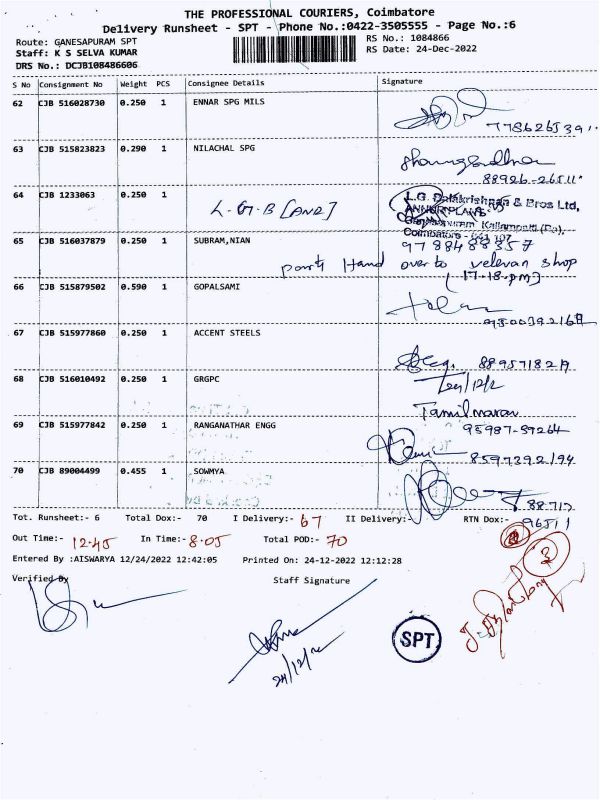 THE PROFESSIONAL COURIERS, Coimbatore
Delivery Runsheet - SPT - Phone No.:0422-3505555 - Page No.:6
Route: GANESAPURAM SPT
Staff: K S SELVA KUMAR
DRS No.: DCJB108486606
RS No.: 1084866
RS Date: 24-Dec-2022
S No Consignment No Weight PCS Consignee Details Signature
62 CJB 516028730 0.250 1 ENNAR SPG MILS
63 CJB 515823823 0.290 1 NILACHAL SPG
88926-26511
64 CJB 1233063 0.250 1 L.G.B [ANR]
L.G. Balakrishnan & Bros Ltd,
65 CJB 516037879 0.250 1 SUBRAM,NIAN
9788488357
Hand over to velevan shop
(17-18.pm)
66 CJB 515879502 0.590 1 GOPALSAMI
67 CJB 515977860 0.250 1 ACCENT STEELS
68 CJB 516010492 0.250 1 GRGPC
Tamilmaran
69 CJB 515977842 0.250 1 RANGANATHAR ENGG
8597392194
70 CJB 89004499 0.455 1 SOWMYA
Tot. Runsheet:- 6 Total Dox:- 70 I Delivery:- 67 II Delivery:- RTN Dox:-
Out Time:- 12.45 In Time:- 8.05 Total POD:- 70
3
Entered By :AISWARYA 12/24/2022 12:42:05 Printed On: 24-12-2022 12:12:28
Verified By Staff Signature
SPT